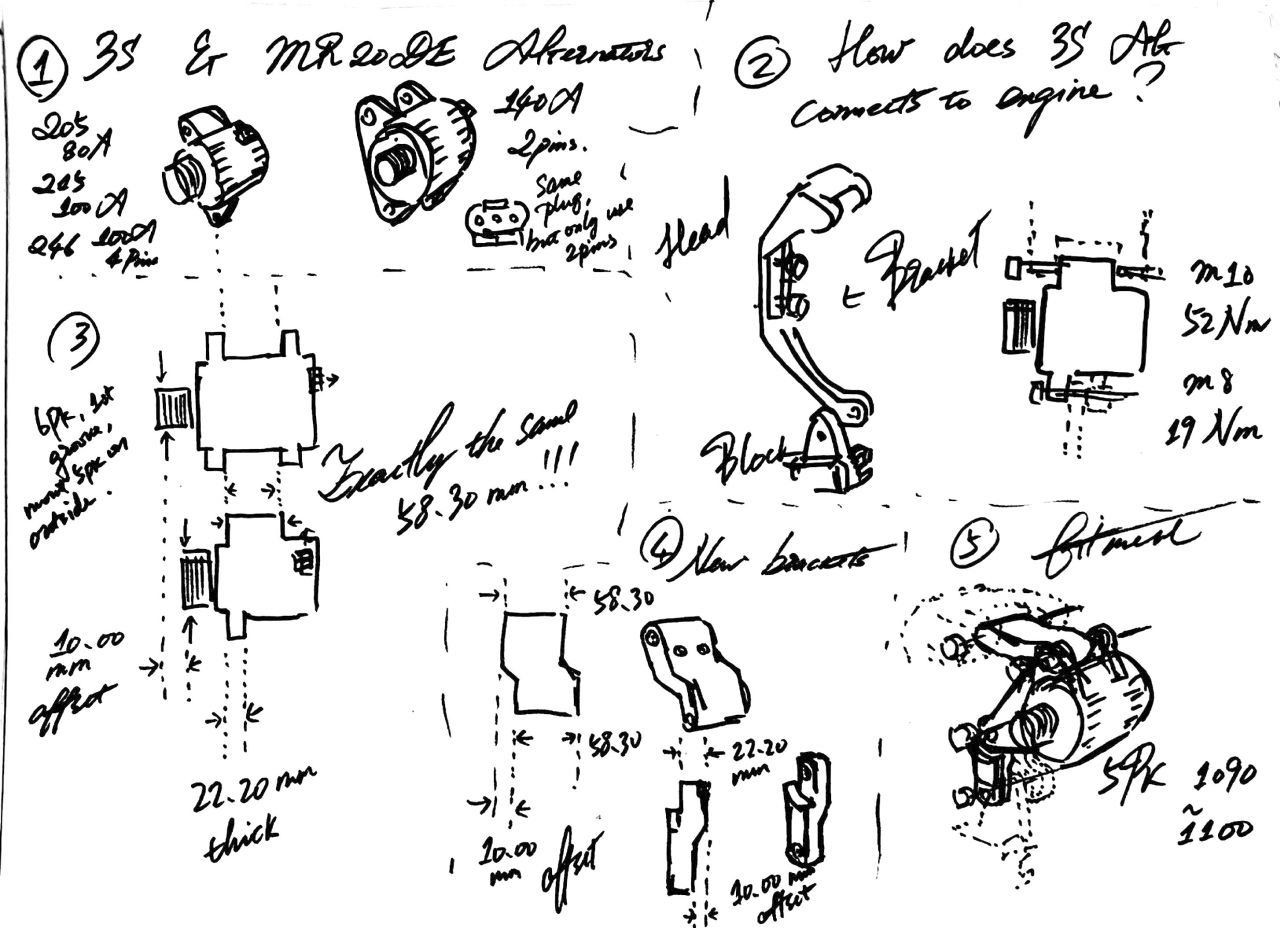 1 3S & MR20DE Alternators
205
80A
215
100A
246 100A
4 Pins
140A
2 pins.
same
plug,
but only use
2 pins
2 How does 3S Alt
connects to engine ?
Head
Bracket
Block
M10
52 Nm
M8
19 Nm
3
6PK, 1st
groove,
mount 5PK on
outside.
Exactly the same
58.30 mm !!!
10.00
mm
offset
22.20 mm
thick
4 New brackets
58.30
58.30
10.00
mm
offset
22.20
mm
10.00 mm
offset
5 fitment
5PK 1090
~
1100